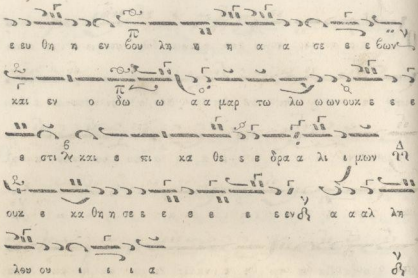 ε ευ θη η εν βου λη η η α α σε ε ε βων
και εν ο δω ω α α μαρ τω λω ω ων ουκ ε ε ε
ε στι και ε πι κα θε ε ε δρα α λι ι μων
ουκ ε κα θη η σε ε ε σε ε ε ε εν α α αλ λη
λου ου ι ι ι α